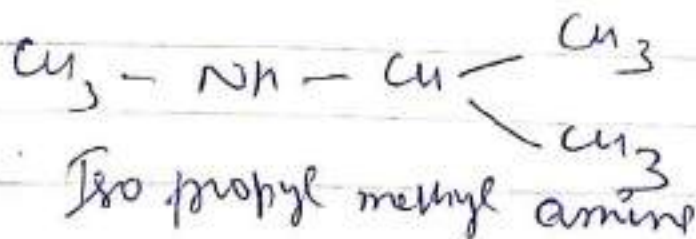 CH3 - NH - CH < CH3
CH3
Iso propyl methyl amine